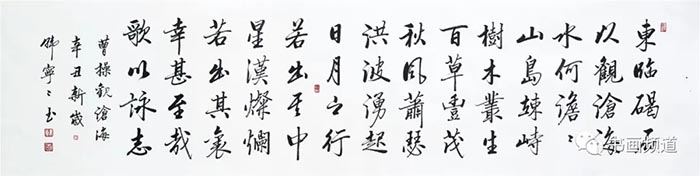 東臨碣石
以觀滄海
水何澹〻
山島竦峙
樹木叢生
百草豐茂
秋風蕭瑟
洪波湧起
日月之行
若出其中
星漢燦爛
若出其裏
幸甚至哉
歌以詠志
曹操觀滄海
辛丑新歲
韓寧〻书
书画频道